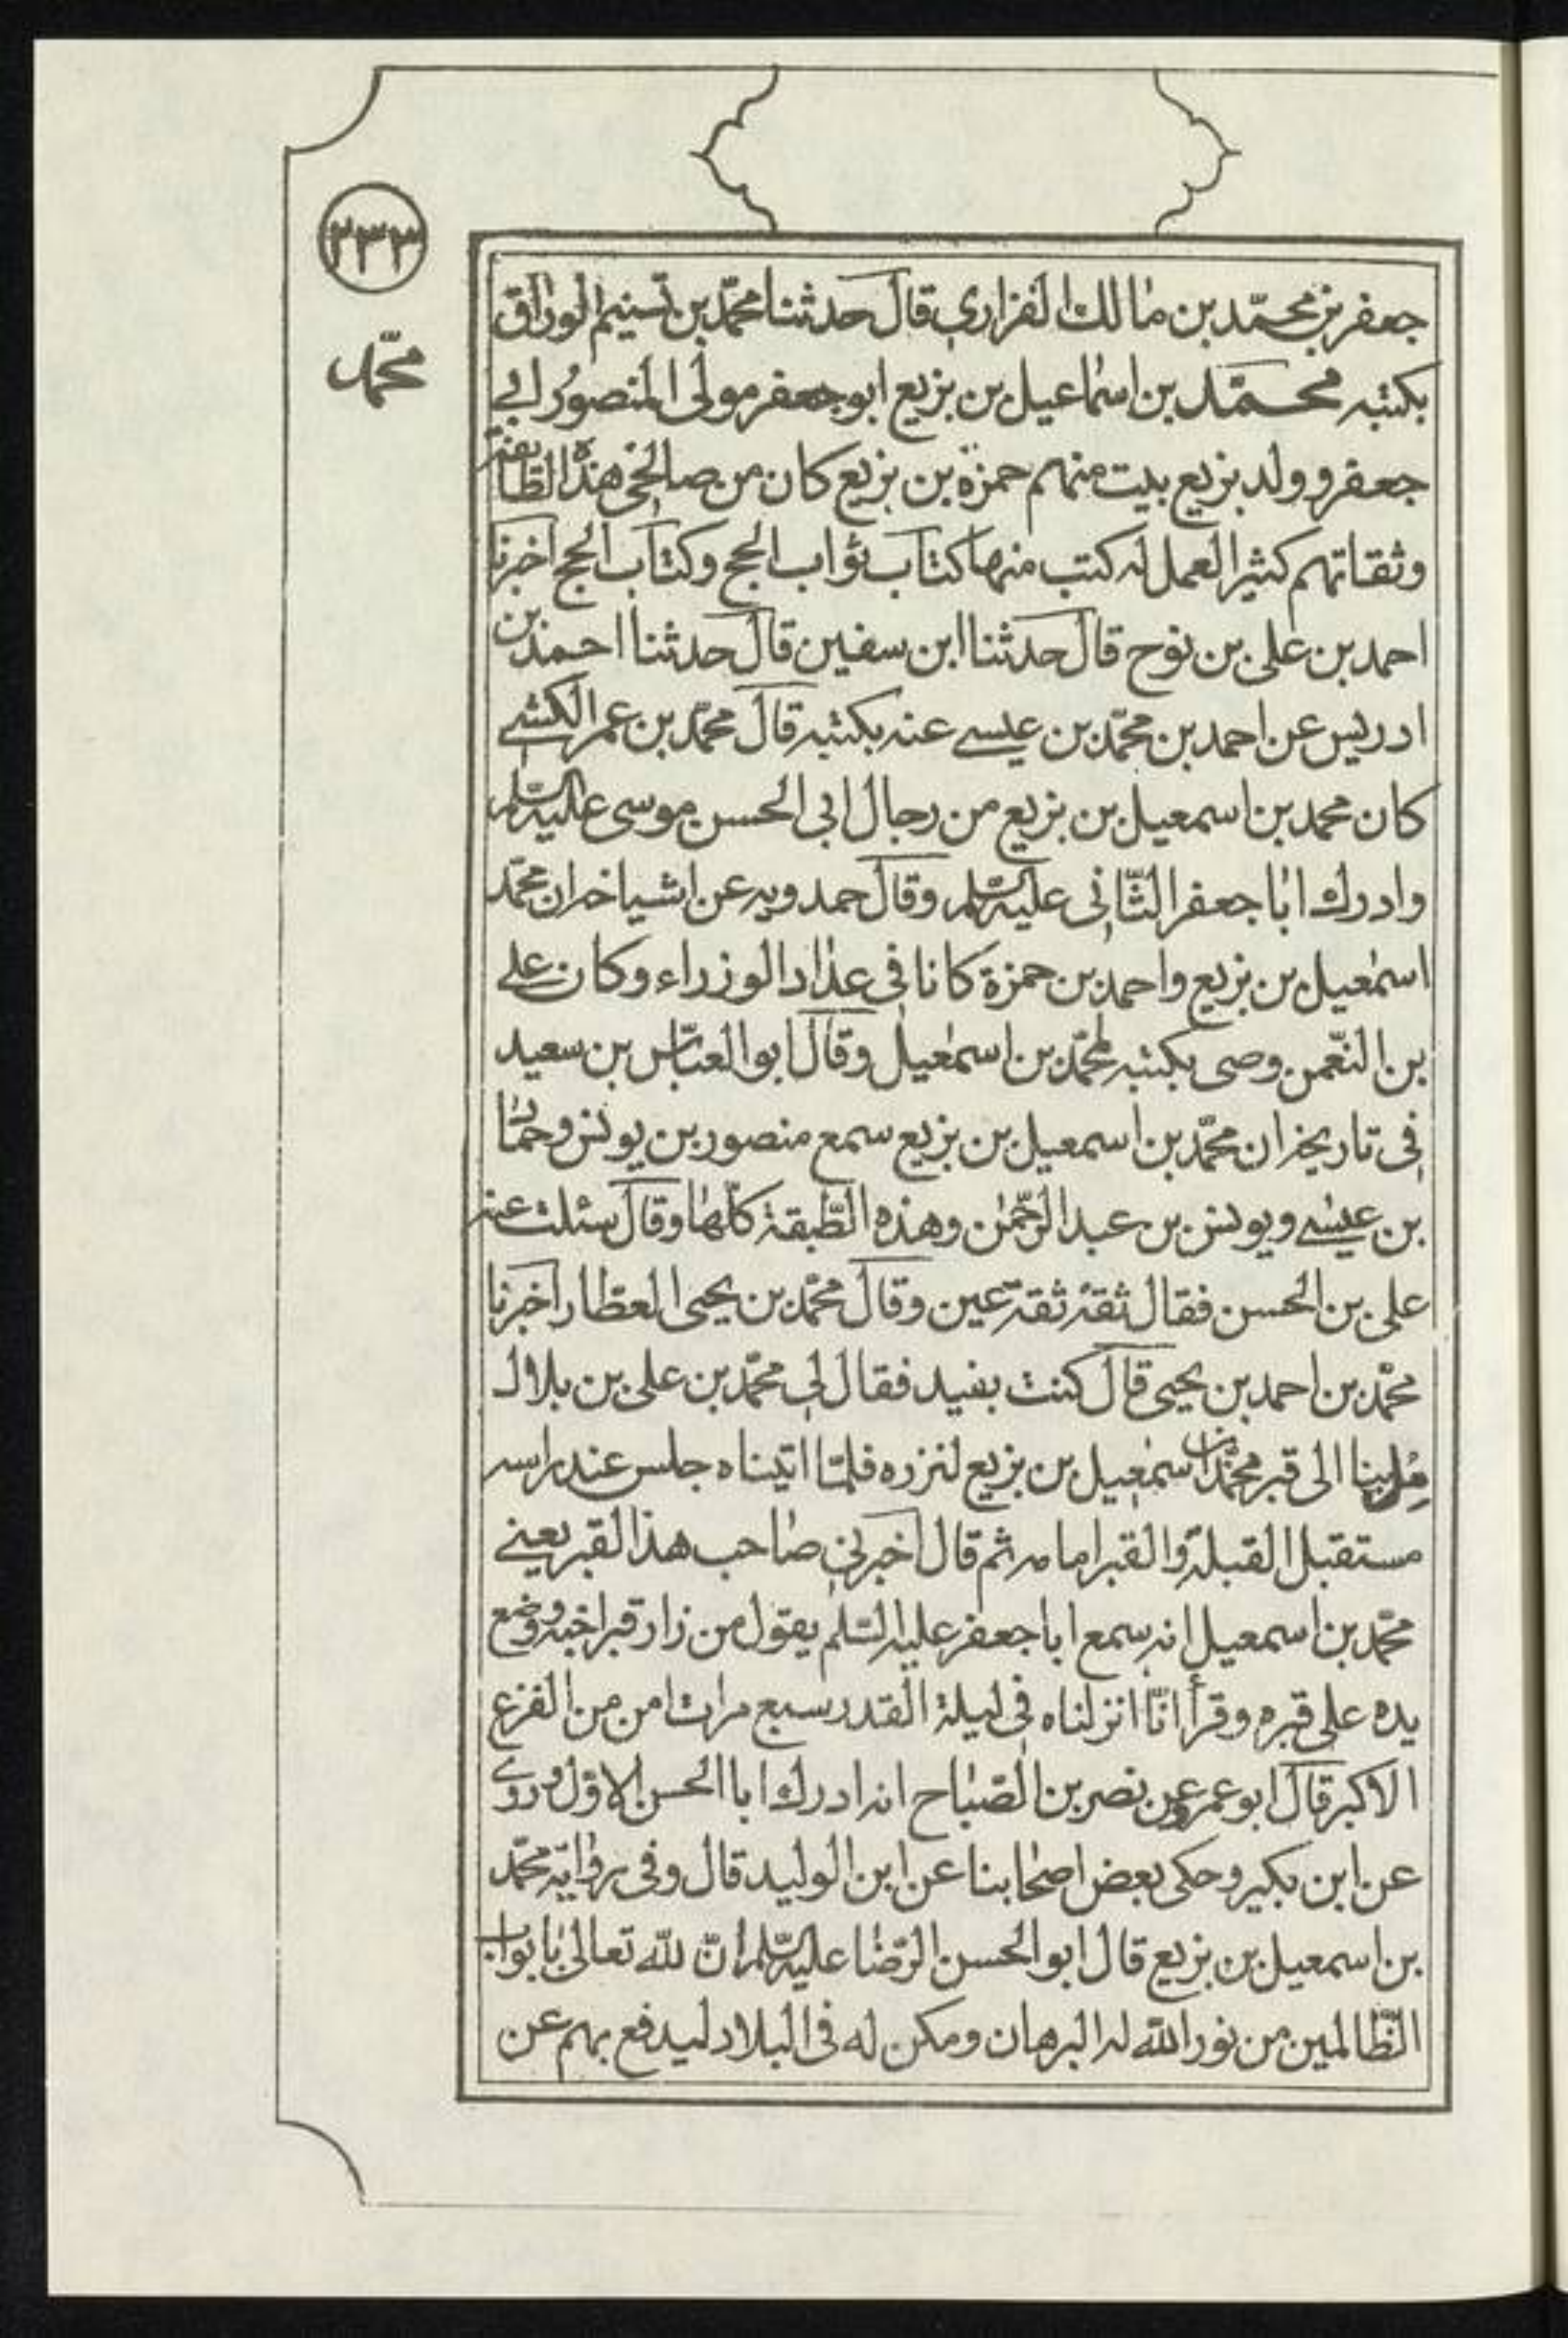 ٢٣٣
محمّد
جعفر بن محمّد بن مالك الفزاري قال حدثنا محمّد بن تسنيم الوراق
بكتبه محمّد بن اسماعيل بن بزيع ابو جعفر مولى المنصور ابي
جعفر وولد بزيع بيت منهم حمزة بن بزيع كان من صالحى هذه الطائفة
وثقاتهم كثير العمل له كتب منها كتاب ثواب الحج وكتاب الحج اخبرنا
احمد بن على بن نوح قال حدثنا ابن سفين قال حدثنا احمد بن
ادريس عن احمد بن محمّد بن عيسى عنه بكتبه قال محمّد بن عمر الكشى
كان محمد بن اسمعيل بن بزيع من رجال ابى الحسن موسى عليه السّلم
وادرك ابا جعفر الثّانى عليه السّلم وقال حمدويه عن اشياخه ان محمّد
اسمعيل بن بزيع واحمد بن حمزة كانا فى عداد الوزراء وكان على
بن النّعمن وصى بكتبه لمحمّد بن اسمعيل وقال ابو العبّاس بن سعيد
فى تاريخه ان محمّد بن اسمعيل بن بزيع سمع منصور بن يونس وحمّاد
بن عيسى ويونس بن عبد الرّحمن وهذه الطّبقة كلّها وقال سئلت عنه
على بن الحسن فقال ثقة ثقة عين وقال محمّد بن يحيى العطار اخبرنا
محمّد بن احمد بن يحيى قال كنت بفيد فقال لى محمّد بن على بن بلال
مر بنا الى قبر محمّد بن اسمعيل بن بزيع لنزره فلمّا اتيناه جلس عند راسه
مستقبل القبلة والقبر امامه ثم قال اخبرنى صاحب هذا القبر يعنى
محمّد بن اسمعيل انه سمع ابا جعفر عليه السّلم يقول من زار قبر اخيه ووضع
يده على قبره وقرأ انّا انزلناه فى ليلة القدر سبع مرات امن من الفزع
الاكبر قال ابو عمرو عن نصر بن الصّباح انه ادرك ابا الحسن الاوّل وروى
عن ابن بكير وحكى بعض اصحابنا عن ابن الوليد قال وفى رواية محمّد
بن اسمعيل بن بزيع قال ابو الحسن الرّضا عليه السّلم انّ للّه تعالى بابواب
الظّالمين من نور اللّه له البرهان ومكن له فى البلاد ليدفع بهم عن